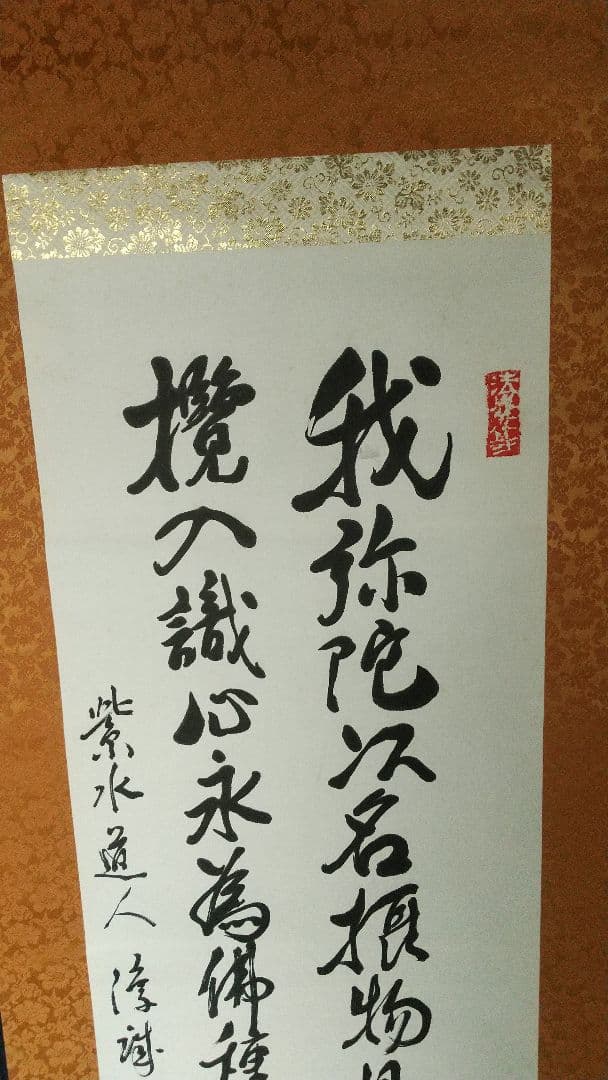 我弥陀以名摂物
攬入識心永為佛種
紫水道人